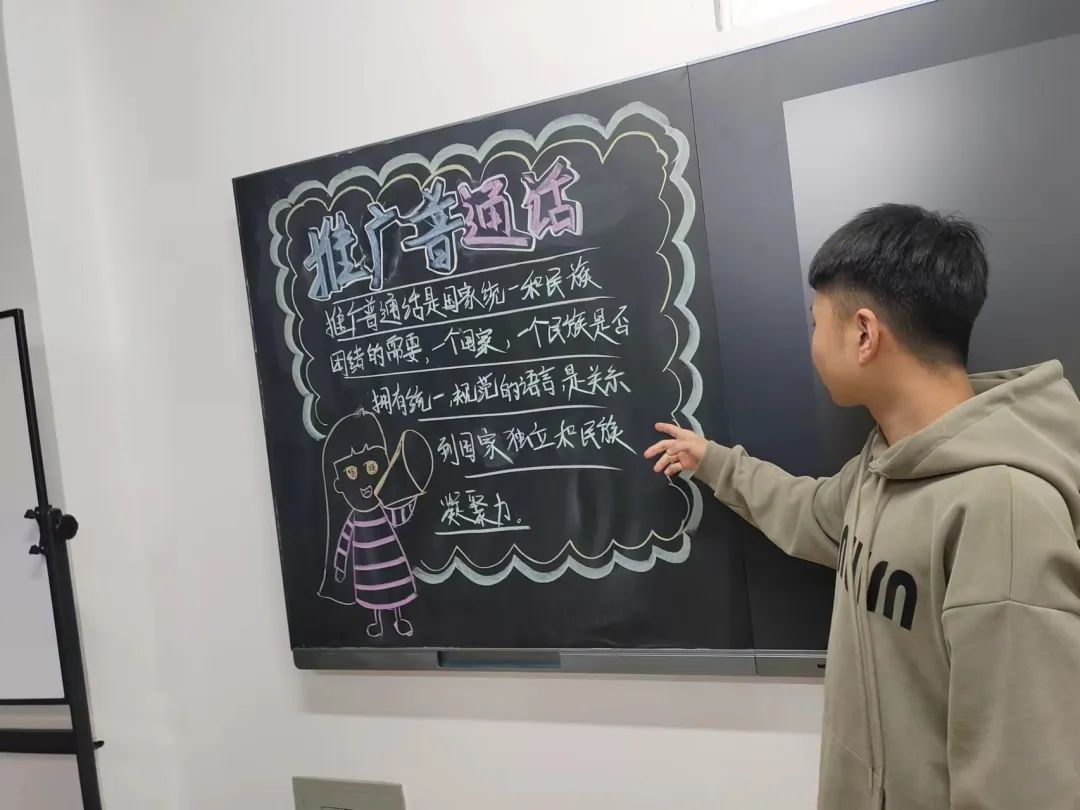 推广普通话
推广普通话是国家统一和民族
团结的需要,一个国家,一个民族是否
拥有统一、规范的语言,是关系
到国家独立和民族
凝聚力。